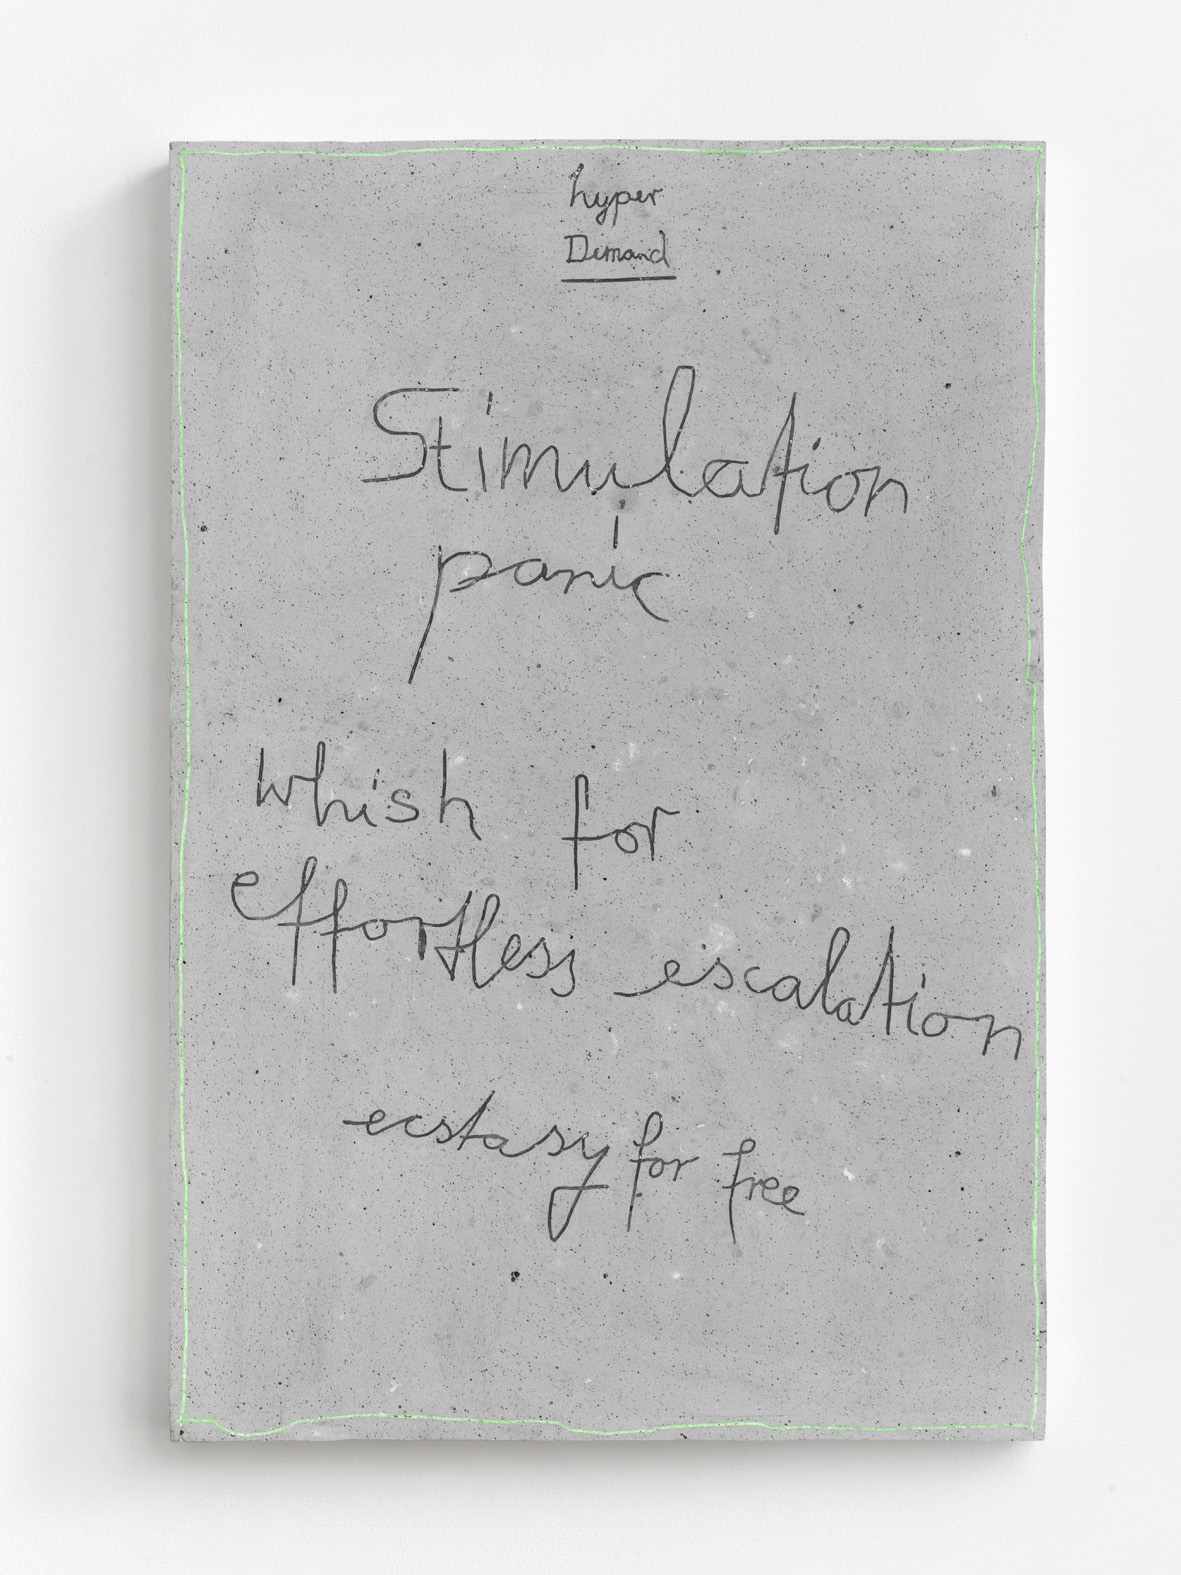 hyper
Demand
Stimulation
panic
Whish for
effortless escalation
ecstasy for free